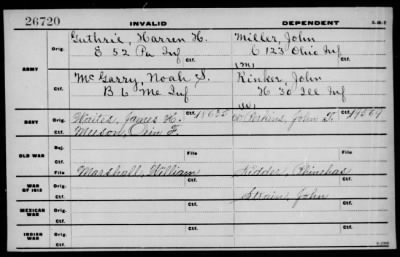 26720 INVALID DEPENDENT
Guthrie, Warren H. Miller, John
Orig. E 52 Pa Inf C 123 Ohio Inf
Ctf. (M)
ARMY
McGarry, Noah S. Rinker, John
Orig. B 6 Me Inf H 30 Ill Inf
Ctf. (W)
NAVY Orig. Waites, James H. Ctf. Perkins, John Ctf.
Ctf.
OLD WAR Rej.
Ctf.
WAR OF 1812 Orig. Marshall, William Ctf. Kidder, Phinehas Ctf.
Ctf. Strain, John
MEXICAN WAR Orig. Ctf. Ctf.
Ctf.
INDIAN WAR Orig. Ctf.
Ctf.